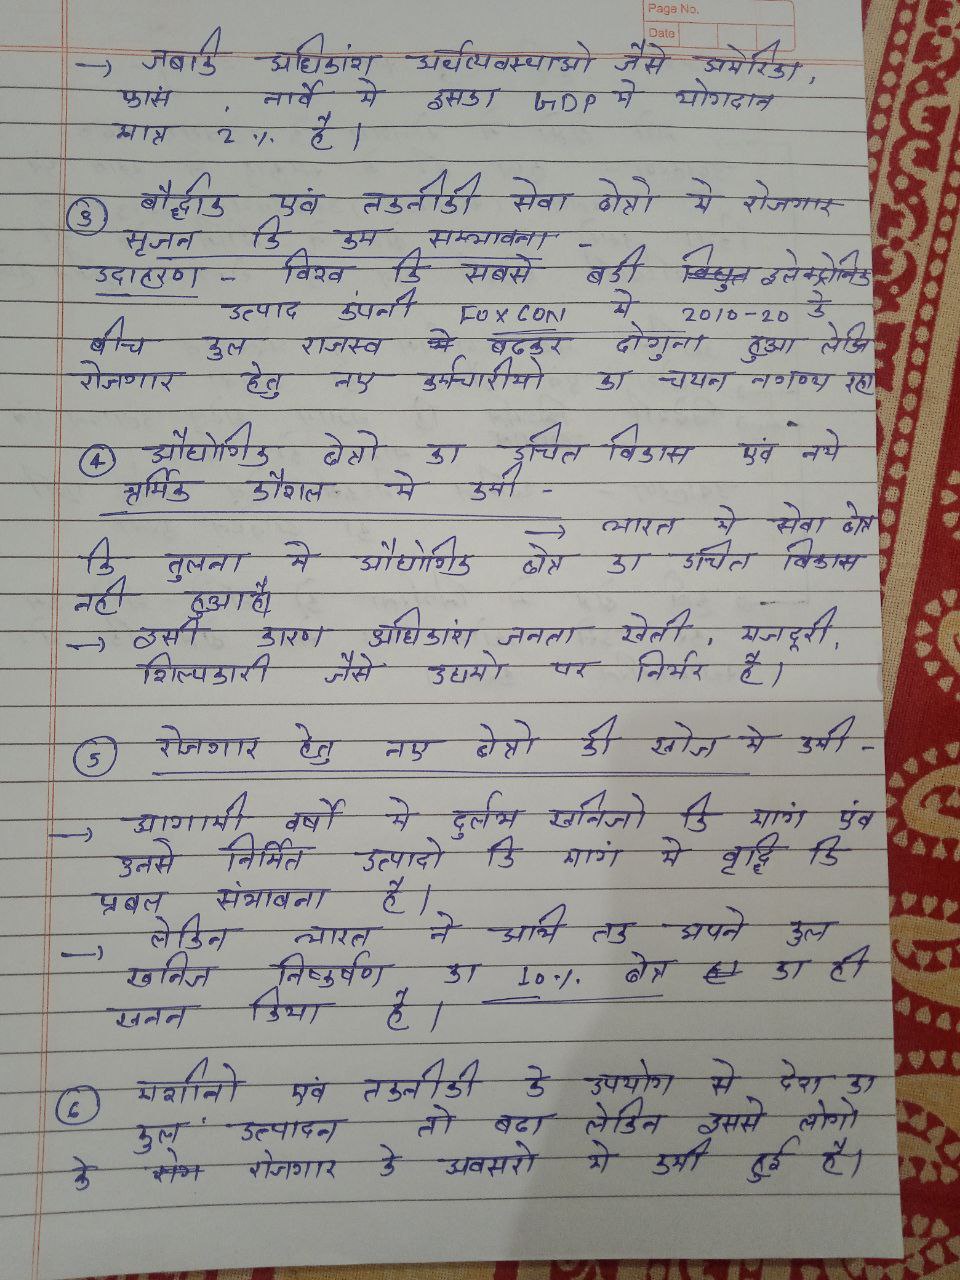 Page No.
Date
→ जबकि अधिकांश अर्थव्यवस्थाओ जैसे अमेरिका,
फ्रांस, नार्वे मे इसका GDP मे योगदान
मात्र 2% है।
③ बौद्धीक एवं तकनीकी सेवा क्षेत्रो मे रोजगार
सृजन कि कम सम्भावना -
उदाहरण - विश्व कि सबसे बडी विधुत इलेक्ट्रोनिक
उत्पाद कंपनी FOXCON मे 2010-20 के
बीच कुल राजस्व मे बढकर दोगुना हुआ लेकिन
रोजगार हेतु नए कर्मचारीयो का चयन नगण्य रहा
④ औधोगिक क्षेत्रो का उचित विकास एवं नये
श्रमिक कौशल मे कमी -
→ भारत मे सेवा क्षेत्र
कि तुलना मे औधोगिक क्षेत्र का उचित विकास
नही हुआ है।
→ इसी कारण अधिकांश जनता खेती, मजदूरी,
शिल्पकारी जैसे उधमो पर निर्भर है।
⑤ रोजगार हेतु नए क्षेत्रो की खोज मे कमी -
→ आगामी वर्षो मे दुर्लभ खनिजो कि मांग एंव
उनसे निर्मित उत्पादो कि मांग मे वृद्धि कि
प्रबल संभावना है।
→ लेकिन भारत ने अभि तक अपने कुल
खनिज निष्कर्षण का 10% क्षेत्र का ही
खनन किया है।
⑥ मशीनो एवं तकनीकी के उपयोग से देश का
कुल उत्पादन तो बढा लेकिन इससे लोगो
के रोजगार के अवसरो मे कमी हुई है।